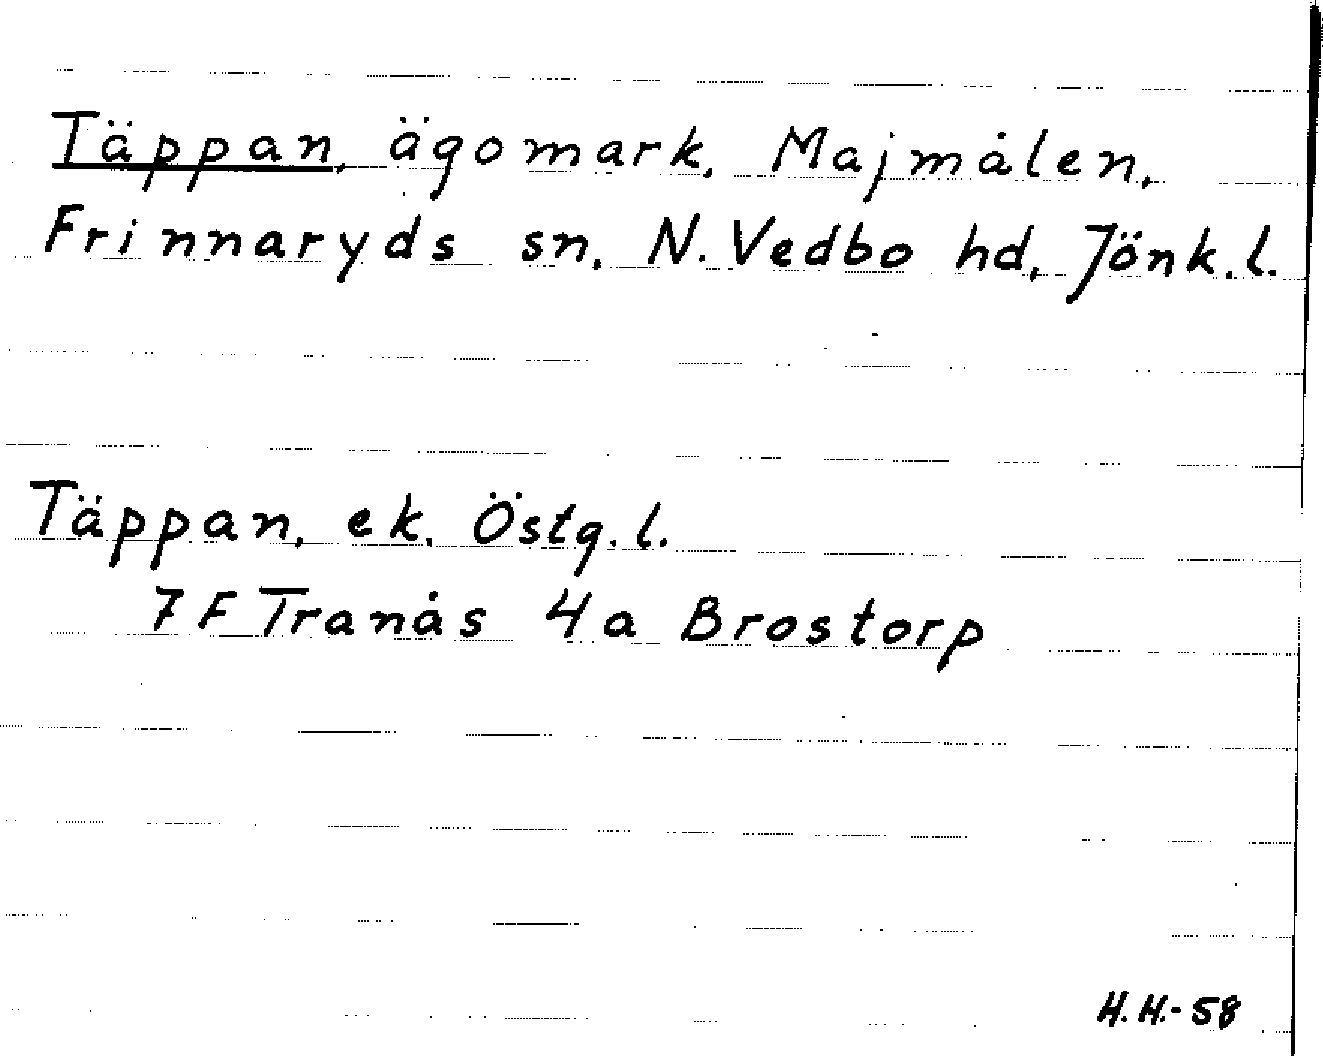 Täppan, ägomark, Majmålen,
Frinnaryds sn, N. Vedbo hd, Jönk.l.
Täppan, ek. Östg.l.
7 F Tranås 4a Brostorp
H.H.-58